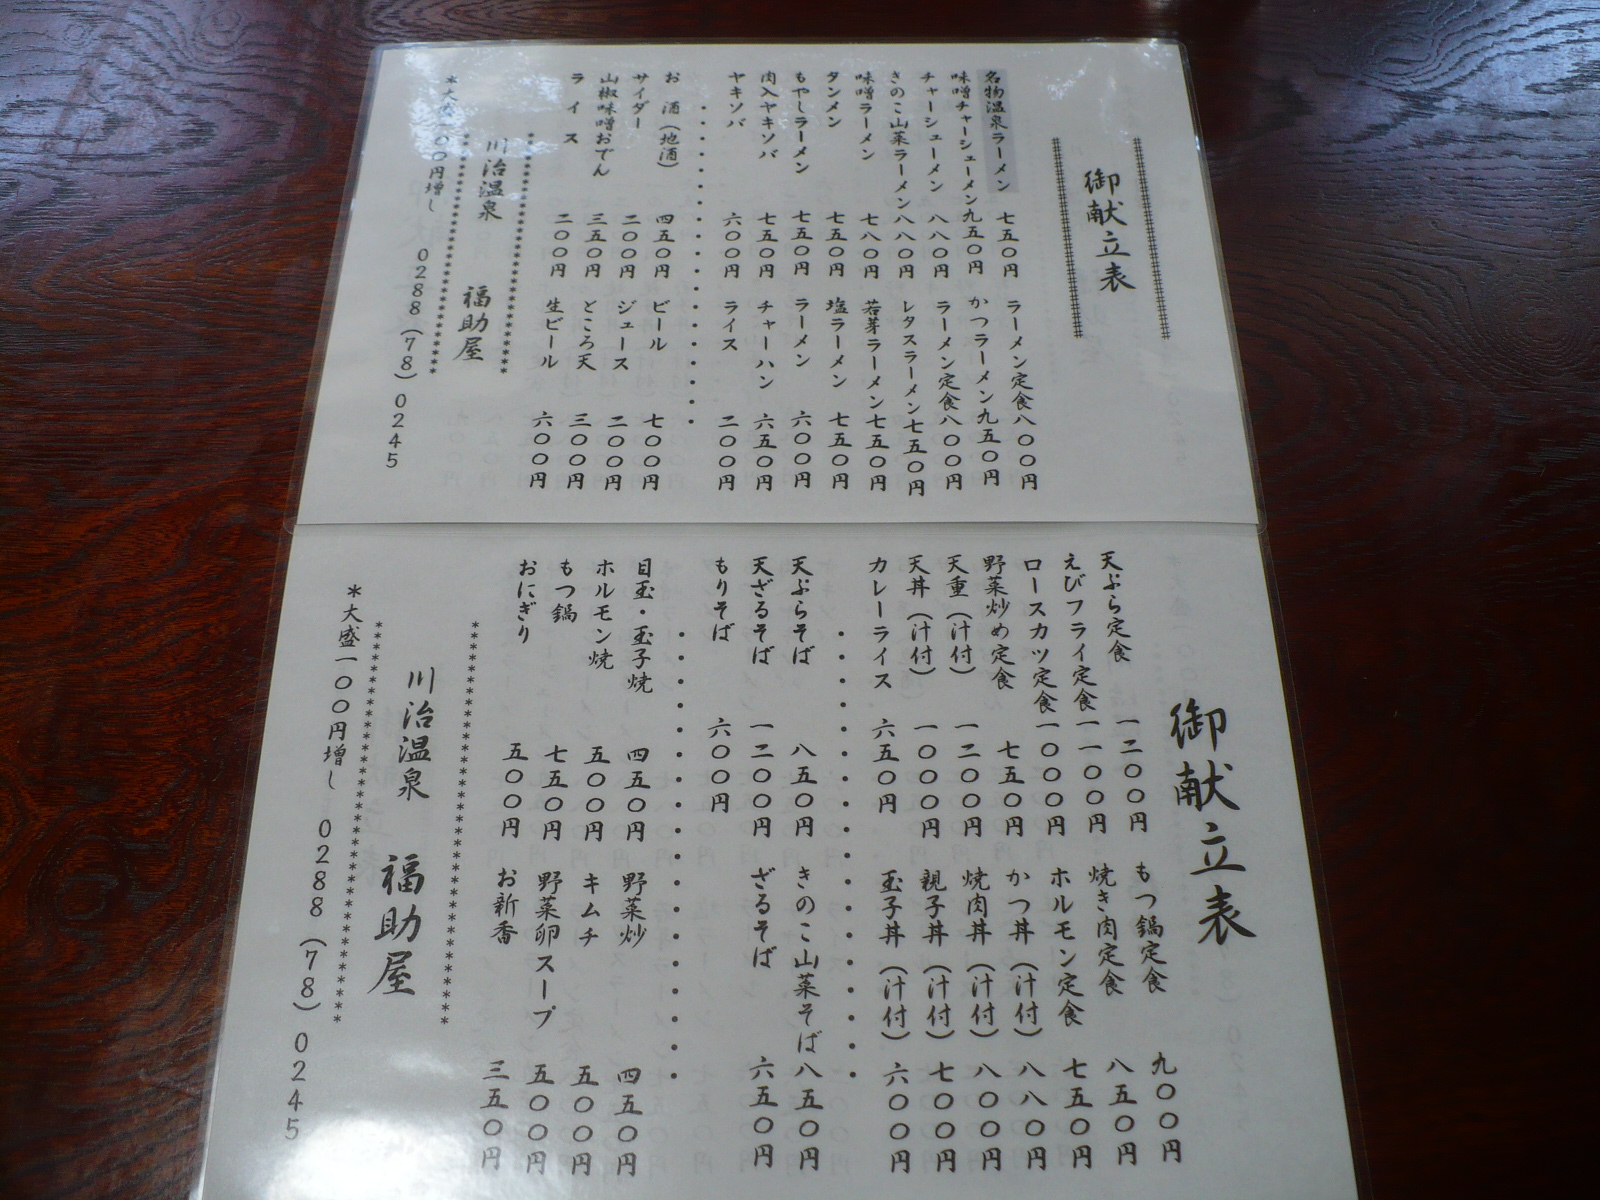 御献立表
名物温泉ラーメン 七五〇円
味噌チャーシューメン 九五〇円
チャーシューメン 八八〇円
きのこ山菜ラーメン 八八〇円
味噌ラーメン 七八〇円
タンメン 七五〇円
もやしラーメン 七五〇円
肉入ヤキソバ 七五〇円
ヤキソバ 六〇〇円
ラーメン定食 八〇〇円
かつラーメン 九五〇円
ラーメン定食 八〇〇円
レタスラーメン 七五〇円
若芽ラーメン 七五〇円
塩ラーメン 七五〇円
ラーメン 六〇〇円
チャーハン 六五〇円
ライス 二〇〇円
お酒(地酒) 四五〇円
サイダー 二〇〇円
山椒味噌おでん 三五〇円
ライス 二〇〇円
ビール 七〇〇円
ジュース 二〇〇円
ところ天 三〇〇円
生ビール 六〇〇円
川治温泉 福助屋
*大盛一〇〇円増し 0288(78)0245
御献立表
天ぷら定食 一二〇〇円
えびフライ定食 一一〇〇円
ロースカツ定食 一〇〇〇円
野菜炒め定食 七五〇円
天重(汁付) 一二〇〇円
天丼(汁付) 一〇〇〇円
カレーライス 六五〇円
もつ鍋定食 九〇〇円
焼き肉定食 八五〇円
ホルモン定食 七五〇円
かつ丼(汁付) 八八〇円
焼肉丼(汁付) 八〇〇円
親子丼(汁付) 七〇〇円
玉子丼(汁付) 六〇〇円
天ぷらそば 八五〇円
天ざるそば 一二〇〇円
もりそば 六〇〇円
きのこ山菜そば 八五〇円
ざるそば 六五〇円
目玉・玉子焼 四五〇円
ホルモン焼 五〇〇円
もつ鍋 七五〇円
おにぎり 五〇〇円
野菜炒 四五〇円
キムチ 五〇〇円
野菜卵スープ 五〇〇円
お新香 三五〇円
川治温泉 福助屋
*大盛一〇〇円増し 0288(78)0245